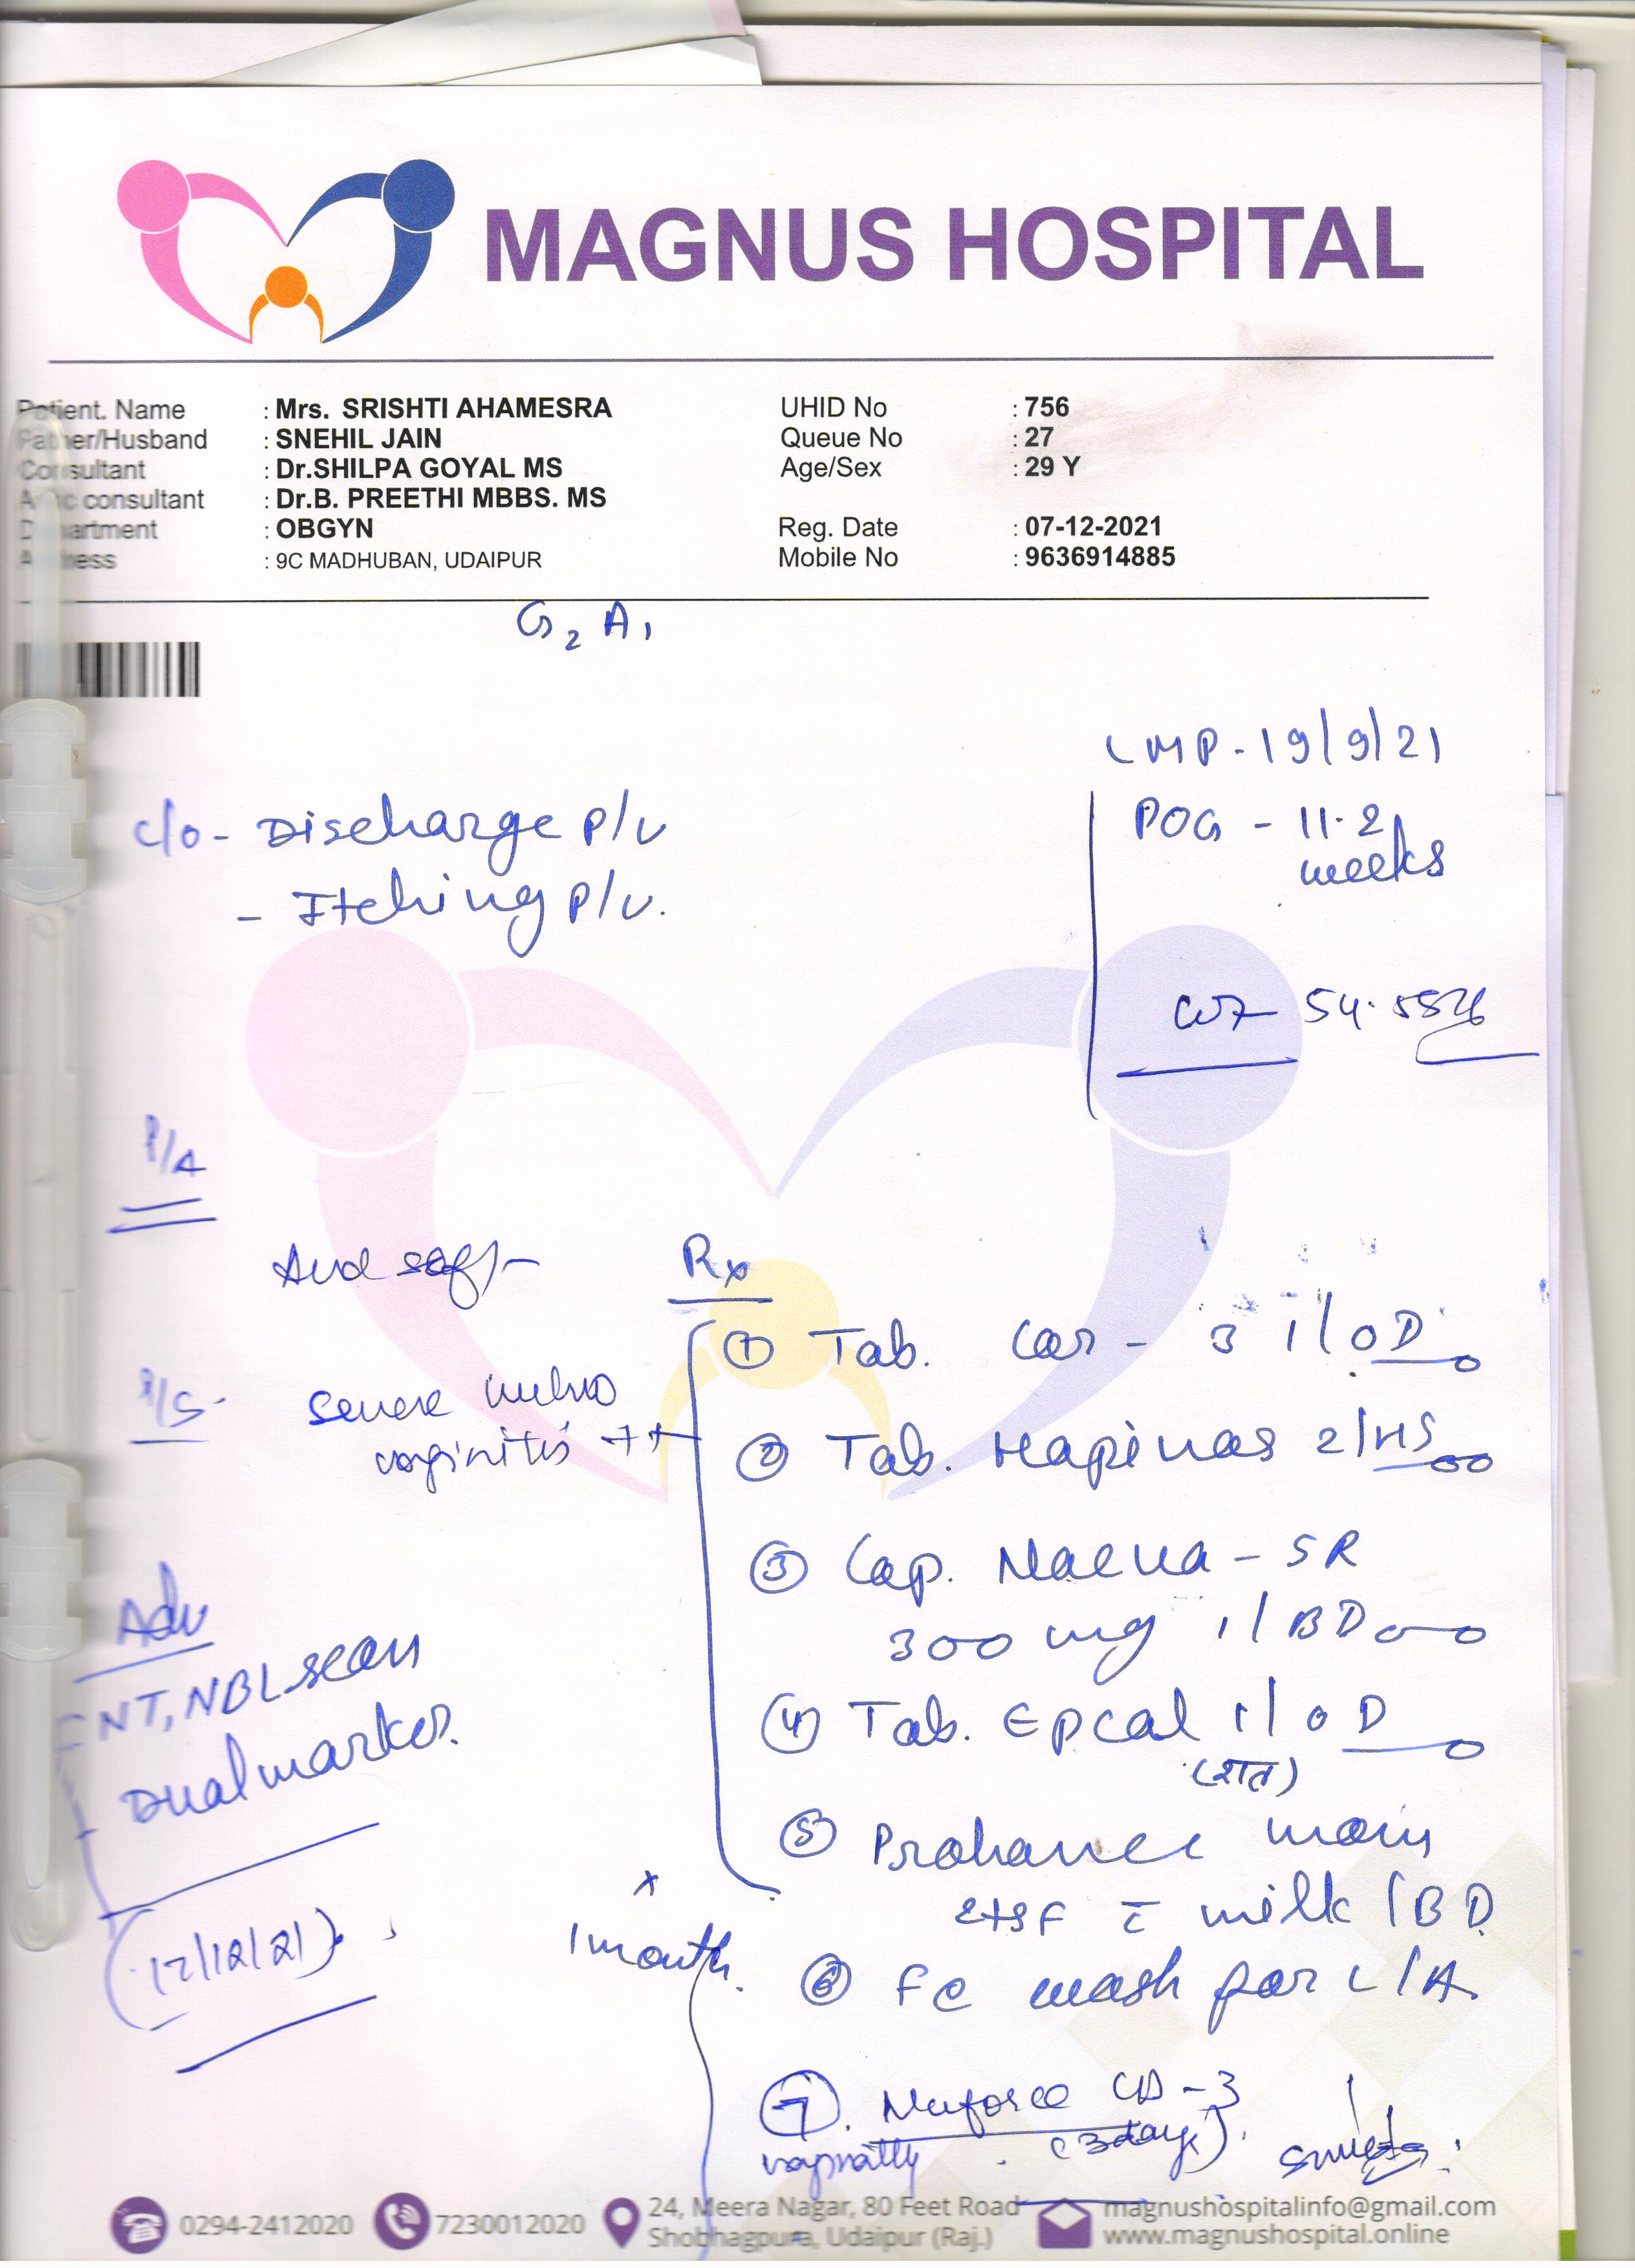 MAGNUS HOSPITAL
Patient. Name : Mrs. SRISHTI AHAMESRA
Father/Husband : SNEHIL JAIN
Consultant : Dr.SHILPA GOYAL MS
consultant : Dr.B. PREETHI MBBS. MS
Department : OBGYN
Address : 9C MADHUBAN, UDAIPUR
UHID No : 756
Queue No : 27
Age/Sex : 29 Y
Reg. Date : 07-12-2021
Mobile No : 9636914885
G2 A1
LMP - 19/9/21
POG - 11.2
weeks
c/o - Discharge P/V
- Itching P/V.
54.
P/A
And soft
P/S -
severe vulvo
vaginitis ++
Adv
NT, NB scan
Dual marker.
(17/12/21)
Rx
① Tab. - 3 1/OD
② Tab. 2/HS
③ Cap. - SR
300 mg 1/BD
④ Tab. Epcal 1/OD
(रात)
⑤ Prohance mom
2tsf c̄ milk /BD
⑥ wash for L/A
x
1 month.
⑦. - 3
vaginally (3 days).
0294-2412020
7230012020
24, Meera Nagar, 80 Feet Road
Shobhagpura, Udaipur (Raj.)
magnushospitalinfo@gmail.com
www.magnushospital.online